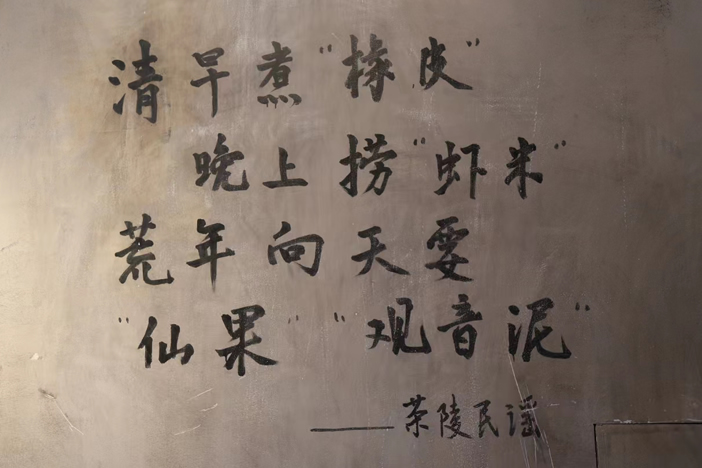 清早煮"橡皮"
晚上捞"虾米"
荒年向天要
"仙果""观音泥"
——茶陵民谣